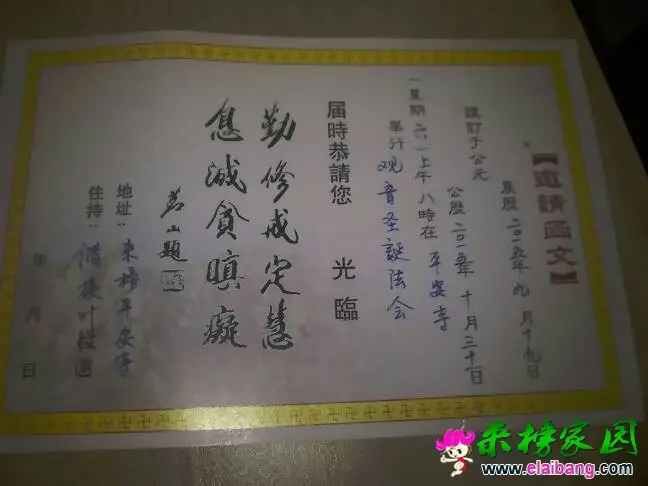 【邀請函文】
農歷二〇一五年九月十九日
謹訂于公元
公歷二〇一五年十月三十一日
(星期六)上午八時在平安寺
舉行观音圣誕法会
届時恭請您 光臨
勤修戒定慧
息滅貪瞋癡
茗山題
地址:来榜平安寺
住持:僧
年 月 日
来榜家园
www.elaibang.com